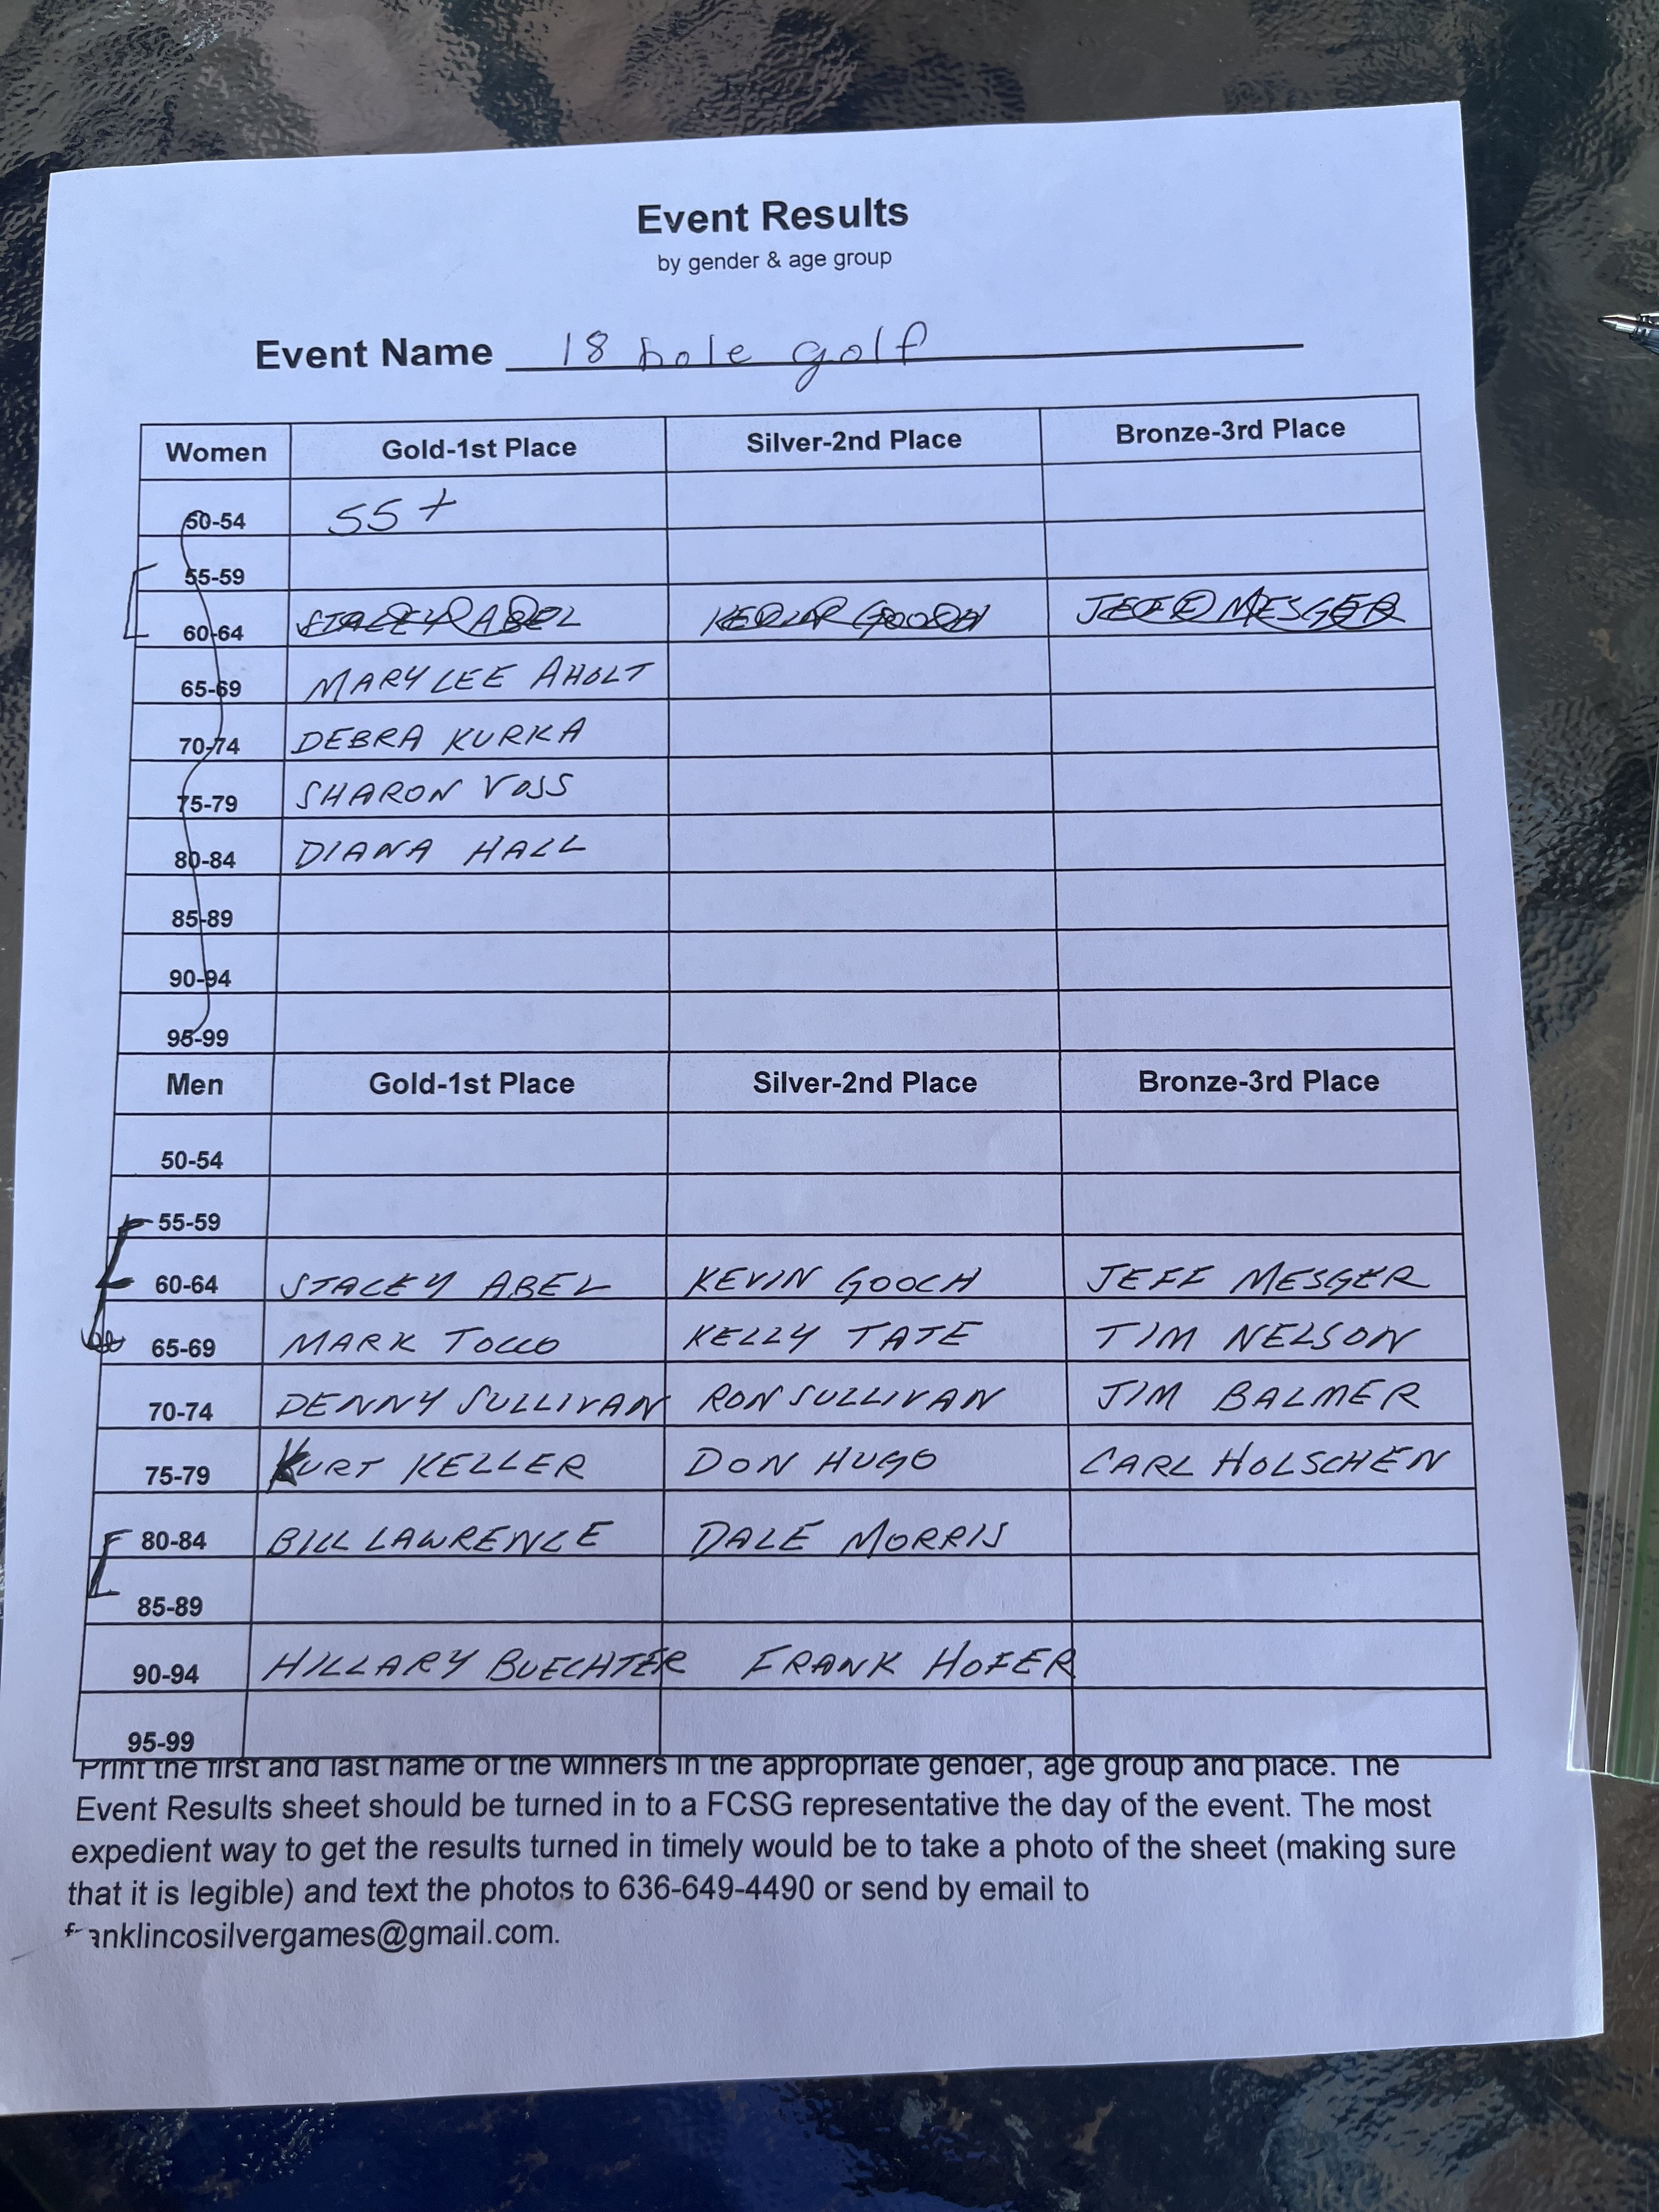 Event Results
by gender & age group
Event Name 18 hole golf
Women Gold-1st Place Silver-2nd Place Bronze-3rd Place
50-54 55+
55-59
60-64 STACEY ABEL KEVIN GOOCH JEFF MESGER
65-69 MARY LEE AHOLT
70-74 DEBRA KURKA
75-79 SHARON VOSS
80-84 DIANA HALL
85-89
90-94
95-99
Men Gold-1st Place Silver-2nd Place Bronze-3rd Place
50-54
55-59
60-64 STACEY ABEL KEVIN GOOCH JEFF MESGER
65-69 MARK TOCCO KELLY TATE TIM NELSON
70-74 DENNY SULLIVAN RON SULLIVAN JIM BALMER
75-79 KURT KELLER DON HUGO CARL HOLSCHEN
80-84 BILL LAWRENCE DALE MORRIS
85-89
90-94 HILLARY BUECHTER FRANK HOFER
95-99
Print the first and last name of the winners in the appropriate gender, age group and place. The
Event Results sheet should be turned in to a FCSG representative the day of the event. The most
expedient way to get the results turned in timely would be to take a photo of the sheet (making sure
that it is legible) and text the photos to 636-649-4490 or send by email to
franklincosilvergames@gmail.com.